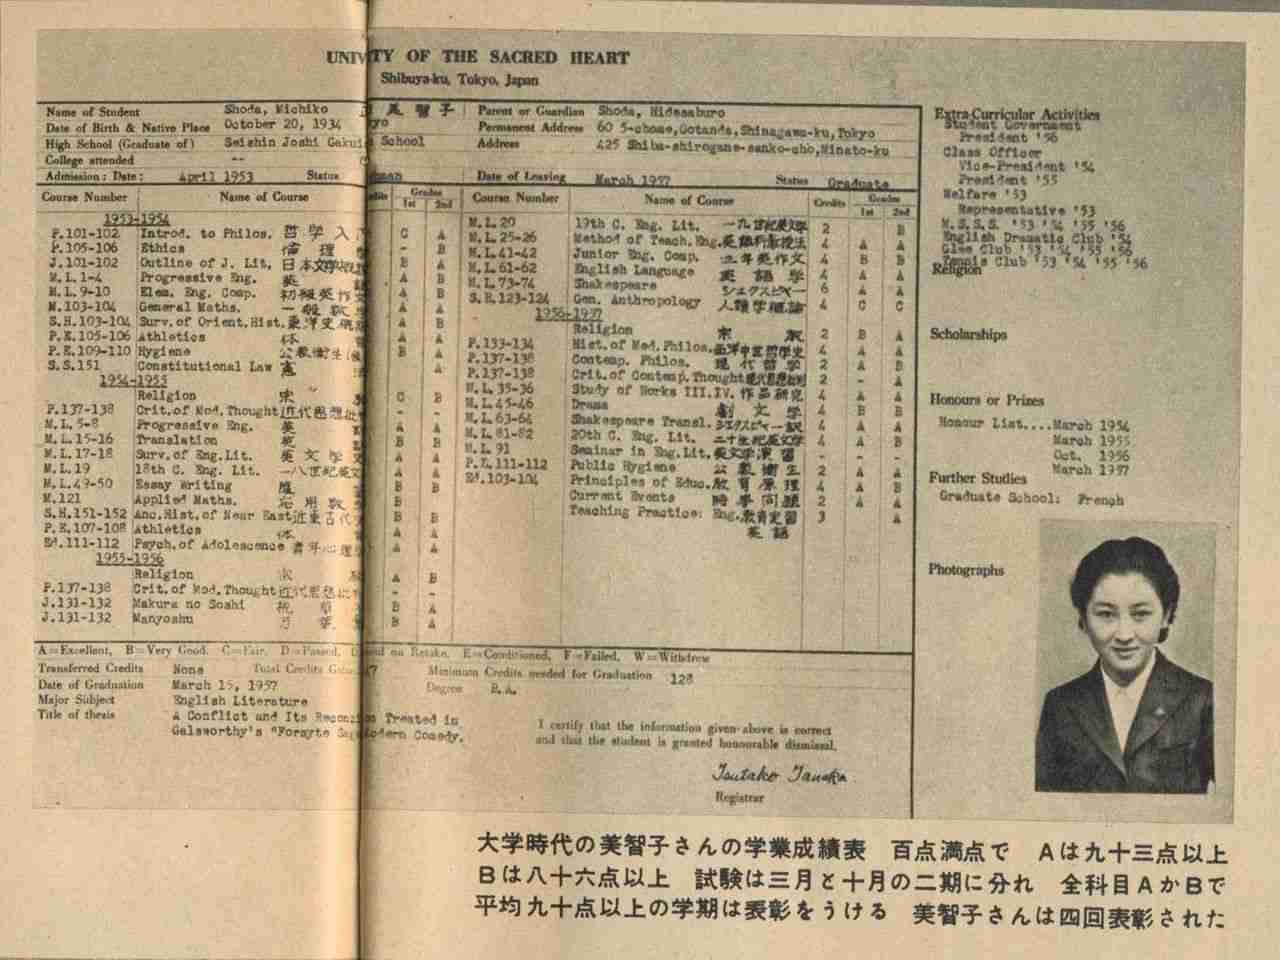 UNIV TY OF THE SACRED HEART
Shibuya-ku, Tokyo, Japan
Name of Student Shoda, Michiko 美智子
Date of Birth & Native Place October 20, 1934 yo
High School (Graduate of) Seishin Joshi Gakui School
College attended --
Admission: Date: April 1953 Status man
Parent or Guardian Shoda, Hidesaburo
Permanent Address 60 5-chome, Gotanda, Shinagawa-ku, Tokyo
Address 425 Shiba-shirogane-sanko-cho, Minato-ku
Date of Leaving March 1957 Status Graduate
Course Number Name of Course dits Grades 1st 2nd
1953-1954
P.101-102 Introd. to Philos. 哲学入 C A
P.105-106 Ethics 倫理 - B
J.101-102 Outline of J. Lit. 日本文学 B A
M.L.1-4 Progressive Eng. 英 A B
M.L.9-10 Elem. Eng. Comp. 初級英作文 A B
M.103-104 General Maths. 一般数 A A
S.H.103-104 Surv. of Orient. Hist. 東洋史 A B
P.E.105-106 Athletics 体 A A
P.E.109-110 Hygiene 公衆衛生 B A
S.S.151 Constitutional Law 憲 A
1954-1955
Religion 宗 C B
P.137-138 Crit. of Mod. Thought 近代思想批 - -
M.L.5-8 Progressive Eng. 英 A A
M.L.15-16 Translation 英 B B
M.L.17-18 Surv. of Eng. Lit. 英文学 A A
M.L.19 18th C. Eng. Lit. 一八世紀英文 A A
M.L.49-50 Essay Writing B B
M.121 Applied Maths. 応用数 B
S.H.151-152 Anc. Hist. of Near East 近東古代 B B
P.E.107-108 Athletics 体 A A
Ed.111-112 Psych. of Adolescence 青年心理 A A
1955-1956
Religion 宗 A B
P.137-138 Crit. of Mod. Thought 近代思想批 - -
J.131-132 Makura no Soshi 枕草 B A
J.131-132 Manyoshu 万葉 B A
Course Number Name of Course Credits Grades 1st 2nd
M.L.20 19th C. Eng. Lit. 一九世紀英文学 2 B
M.L.25-26 Method of Teach. Eng. 英語科教授法 4 A A
M.L.41-42 Junior Eng. Comp. 三年英作文 4 B B
M.L.61-62 English Language 英語学 4 A A
M.L.73-74 Shakespeare シェクスピヤー 6 A A
S.H.123-124 Gen. Anthropology 人類学概論 4 C C
1956-1957
Religion 宗教 2 B A
P.133-134 Hist. of Med. Philos. 西洋中世哲学史 4 A A
P.137-138 Contemp. Philos. 現代哲学 2 A B
P.137-138 Crit. of Contemp. Thought 現代思想批判 2 - A
M.L.35-36 Study of Works III.IV. 作品研究 4 A A
M.L.45-46 Drama 劇文学 4 B B
M.L.63-64 Shakespeare Transl. シェクスピヤー訳 4 A A
M.L.81-82 20th C. Eng. Lit. 二十世紀英文学 4 A B
M.L.91 Seminar in Eng. Lit. 英文学演習 - - -
P.E.111-112 Public Hygiene 公衆衛生 2 A A
Ed.103-104 Principles of Educ. 教育原理 4 A B
Current Events 時事問題 2 A A
Teaching Practice: Eng. 教育実習 3 A
英語
A=Excellent, B=Very Good, C=Fair, D=Passed, on Retake, E=Conditioned, F=Failed, W=Withdrew
Transferred Credits None Total Credits 47 Minimum Credits needed for Graduation 128
Date of Graduation March 15, 1957 Degree B.A.
Major Subject English Literature
Title of thesis A Conflict and Its Reconci n Treated in
Galsworthy's "Forsyte Sag odern Comedy.
I certify that the information given above is correct
and that the student is granted honourable dismissal.
Tsutako Tanaka
Registrar
Extra-Curricular Activities
Student Government
President '56
Class Officer
Vice-President '54
President '55
Welfare '53
Representative '53
M.S.S.S. '53 '54 '55 '56
English Dramatic Club '54
Glee Club '53 '54 '55 '56
Tennis Club '53 '54 '55 '56
Religion
Scholarships
Honours or Prizes
Honour List....March 1954
March 1955
Oct. 1956
March 1957
Further Studies
Graduate School: French
Photographs
大学時代の美智子さんの学業成績表 百点満点で Aは九十三点以上
Bは八十六点以上 試験は三月と十月の二期に分れ 全科目AかBで
平均九十点以上の学期は表彰をうける 美智子さんは四回表彰された